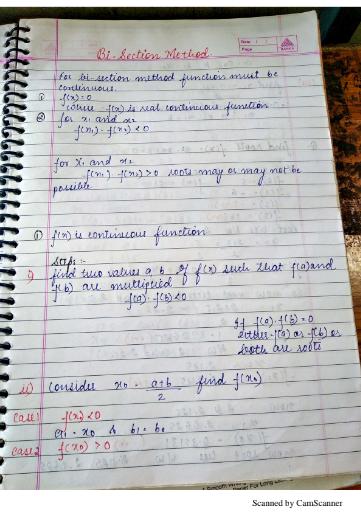 Date
Page
Bi-Section Method.
for bi-section method function must be
continuous.
① f(x)=0
where f(x) is real continuous function
② for x₁ and x₂
f(x₁) · f(x₂) < 0
for x₁ and x₂
f(x₁) · f(x₂) > 0 roots may or may not be
possible
① f(x) is continuous function
Steps :-
i) find two values a, b of f(x) such that f(a) and
f(b) are multiplied
f(a) · f(b) < 0
If f(a) · f(b) = 0
either f(a) or f(b) or
both are roots
ii) Consider x₀ = a+b/2 find f(x₀)
Case 1 f(x₀) < 0
a₁ = x₀ & b₁ = b₀
Case 2 f(x₀) > 0
Scanned by CamScanner